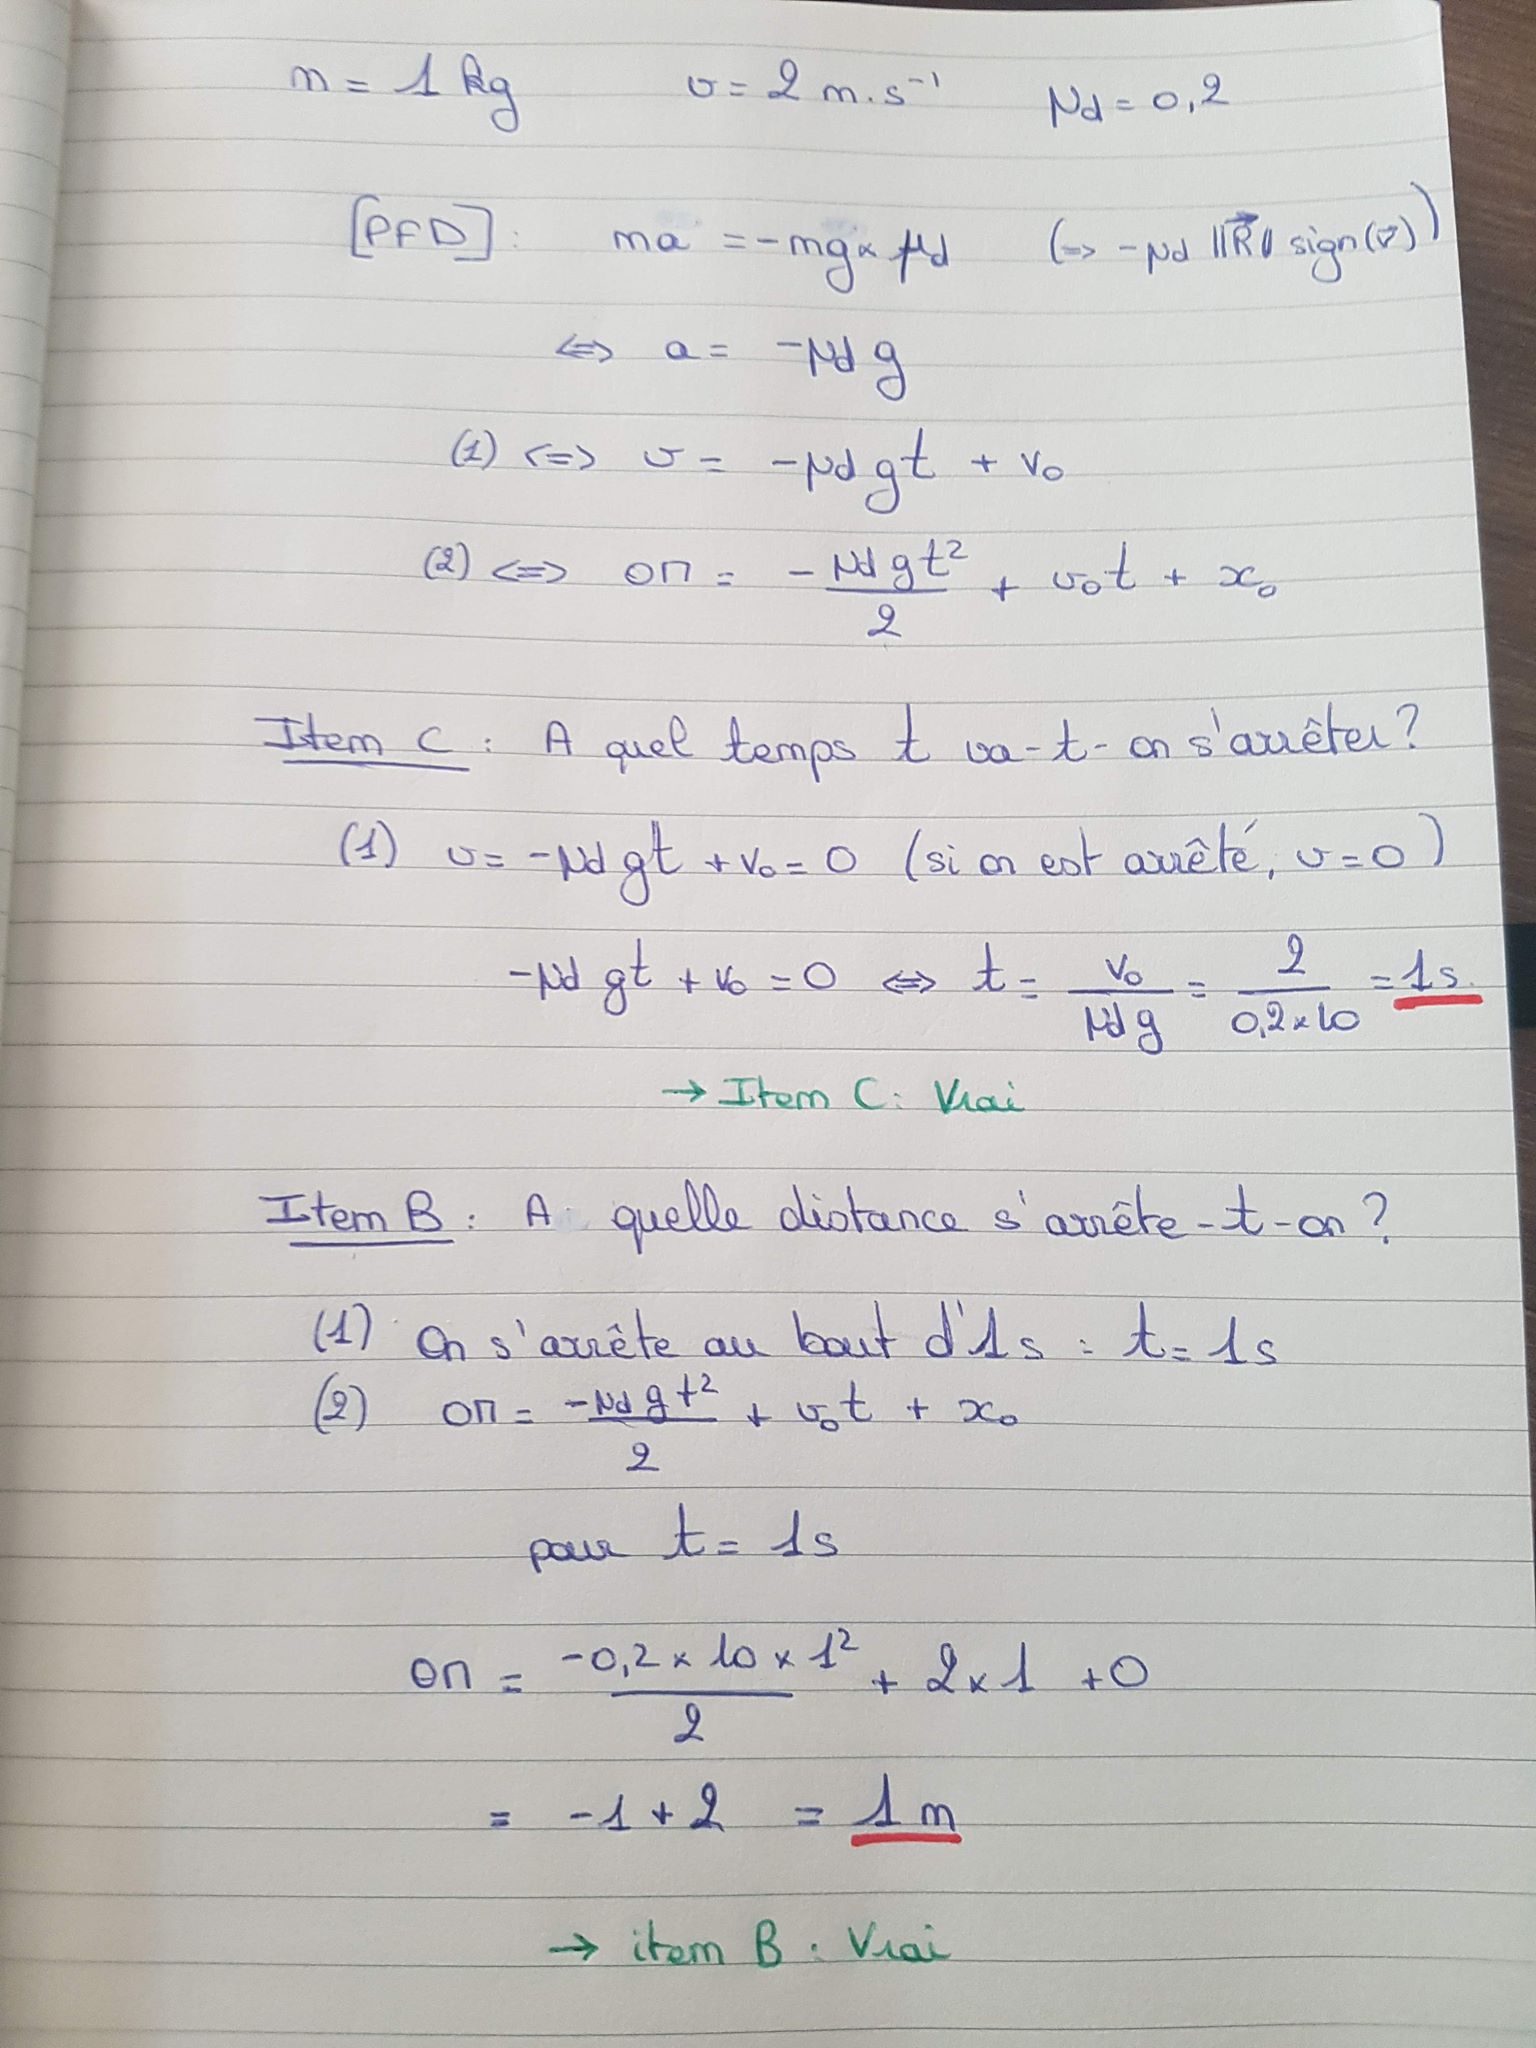 m = 1 kg v = 2 m.s⁻¹ μd = 0,2
[PFD] : ma = -mg × μd (=> -μd ||R⃗|| sign(v⃗))
<=> a = -μd g
(1) <=> v = -μd gt + v₀
(2) <=> OM = - μd gt²/2 + v₀t + x₀
Item C : A quel temps t va-t-on s'arrêter ?
(1) v = -μd gt + v₀ = 0 (si on est arrêté, v = 0)
-μd gt + v₀ = 0 <=> t = v₀/μd g = 2/0,2×10 = 1s
→ Item C : Vrai
Item B : A quelle distance s'arrête-t-on ?
(1) On s'arrête au bout d'1s : t = 1s
(2) OM = -μd gt²/2 + v₀t + x₀
pour t = 1s
OM = -0,2 × 10 × 1²/2 + 2×1 + 0
= -1 + 2 = 1 m
→ item B : Vrai